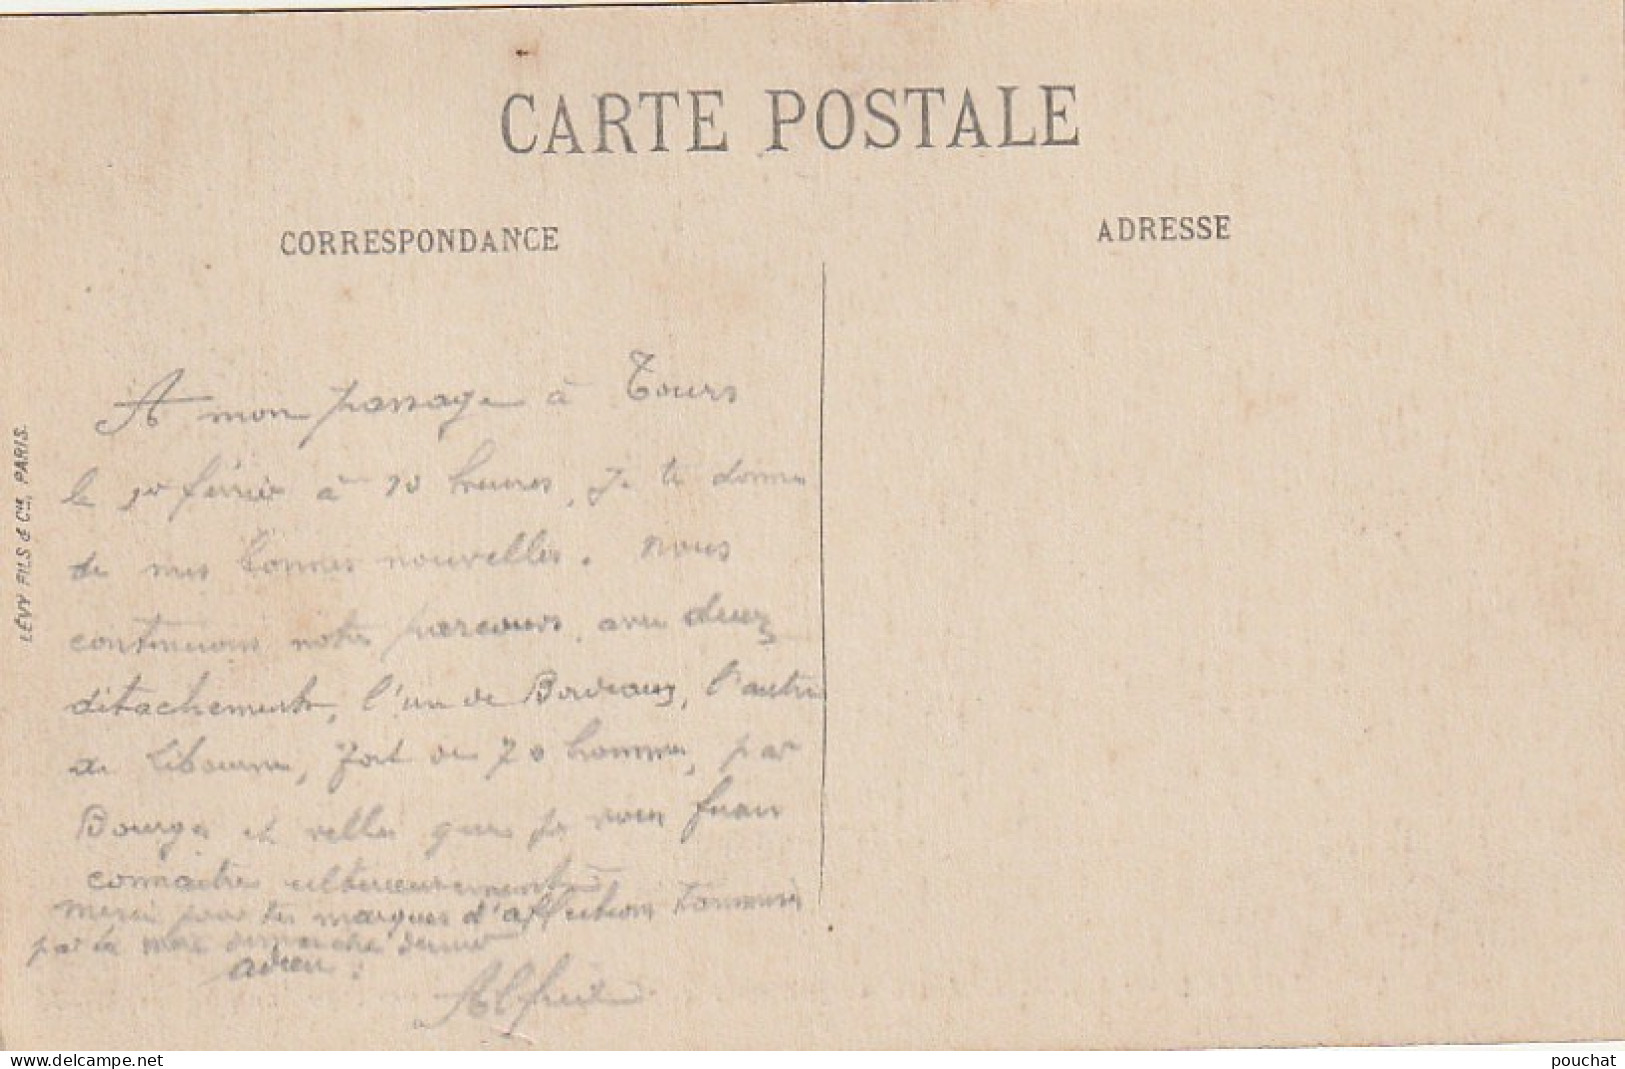 CARTE POSTALE
CORRESPONDANCE
ADRESSE
LÉVY FILS & Cie, PARIS.
A mon passage à Tours
le 1er février à 10 heures, je te donne
de mes bonnes nouvelles. Nous
continuons notre parcours, avec deux
détachements, l'un de Bordeaux, l'autre
de Libourne, fort de 70 hommes, par
Bourges et villes que je vous ferai
connaitre ultérieurement
merci pour tes marques d'affections
par la dimanche dernier
adieu.
Alfred
www.delcampe.net
pouchat